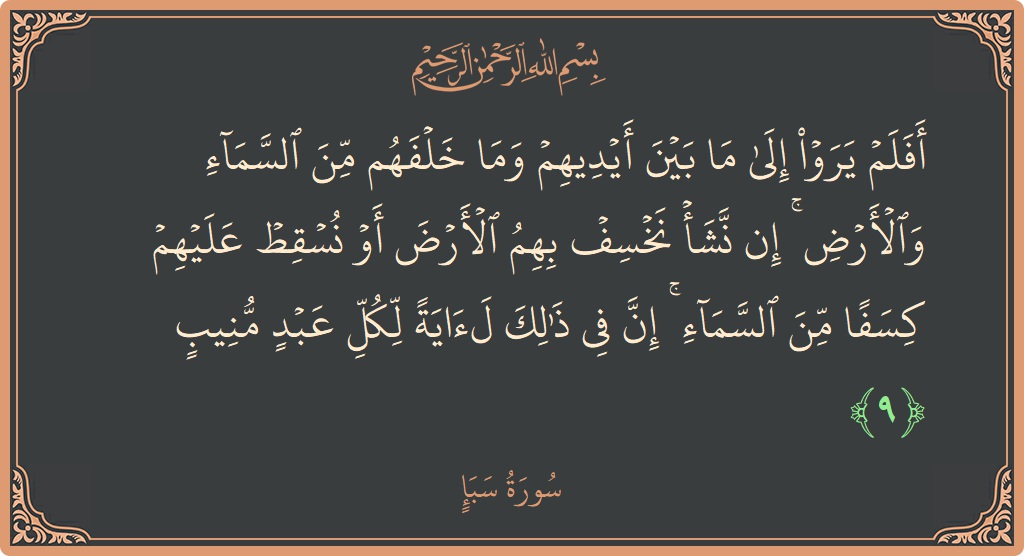 بِسْمِ اللَّهِ الرَّحْمَٰنِ الرَّحِيمِ
أَفَلَمْ يَرَوْا۟ إِلَىٰ مَا بَيْنَ أَيْدِيهِمْ وَمَا خَلْفَهُم مِّنَ ٱلسَّمَآءِ
وَٱلْأَرْضِ ۚ إِن نَّشَأْ نَخْسِفْ بِهِمُ ٱلْأَرْضَ أَوْ نُسْقِطْ عَلَيْهِمْ
كِسَفًا مِّنَ ٱلسَّمَآءِ ۚ إِنَّ فِى ذَٰلِكَ لَـَٔايَةً لِّكُلِّ عَبْدٍ مُّنِيبٍ
﴿٩﴾
سُورَةُ سَبَإٍ